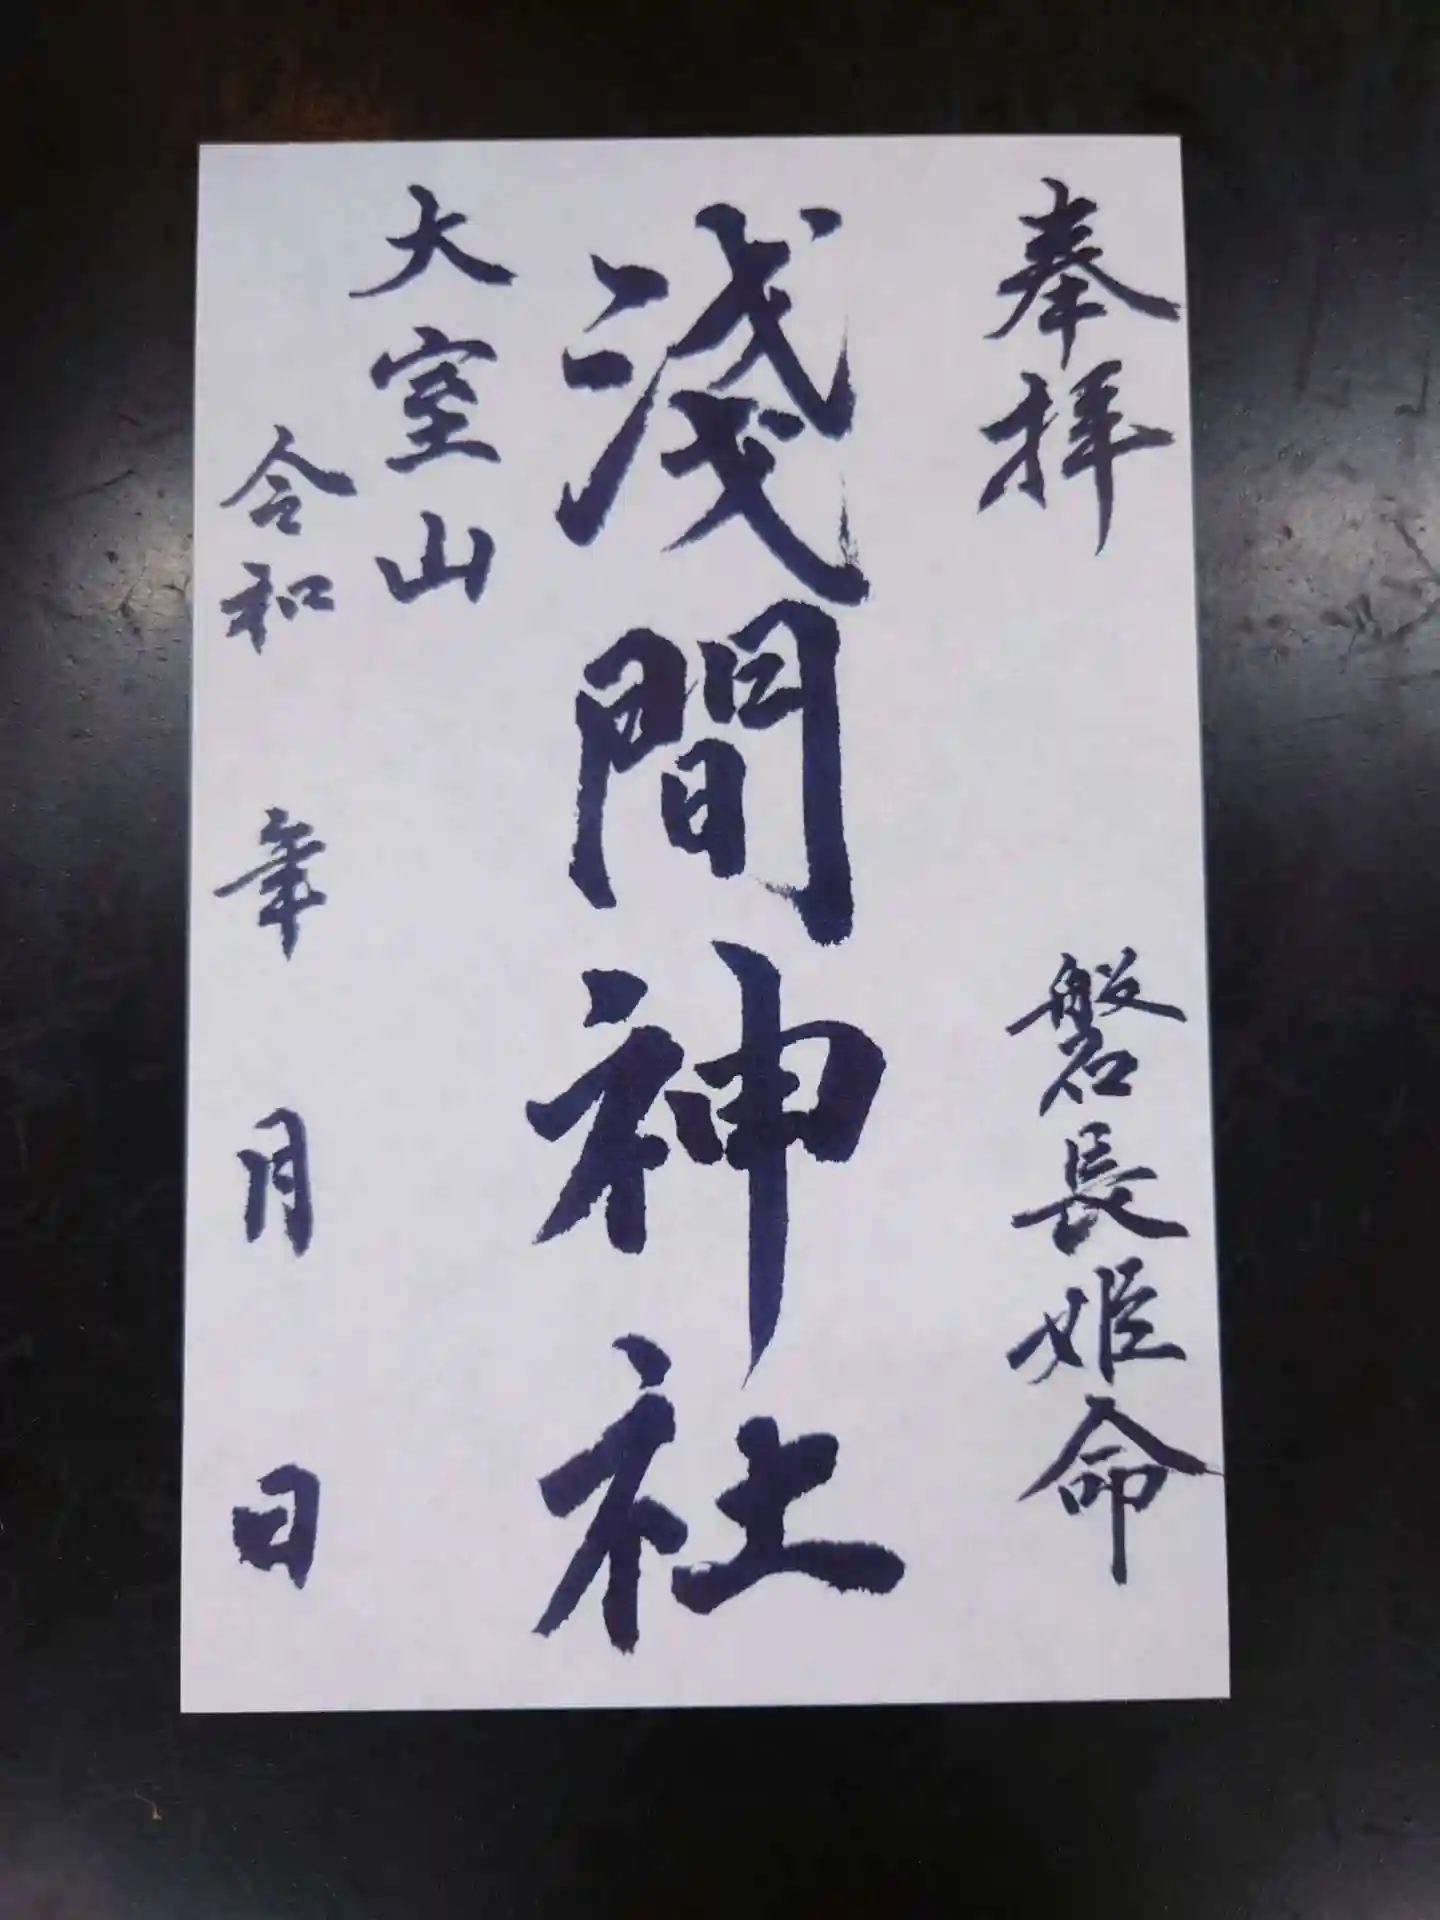 奉拝
磐長姫命
淺間神社
大室山
令和 年 月 日